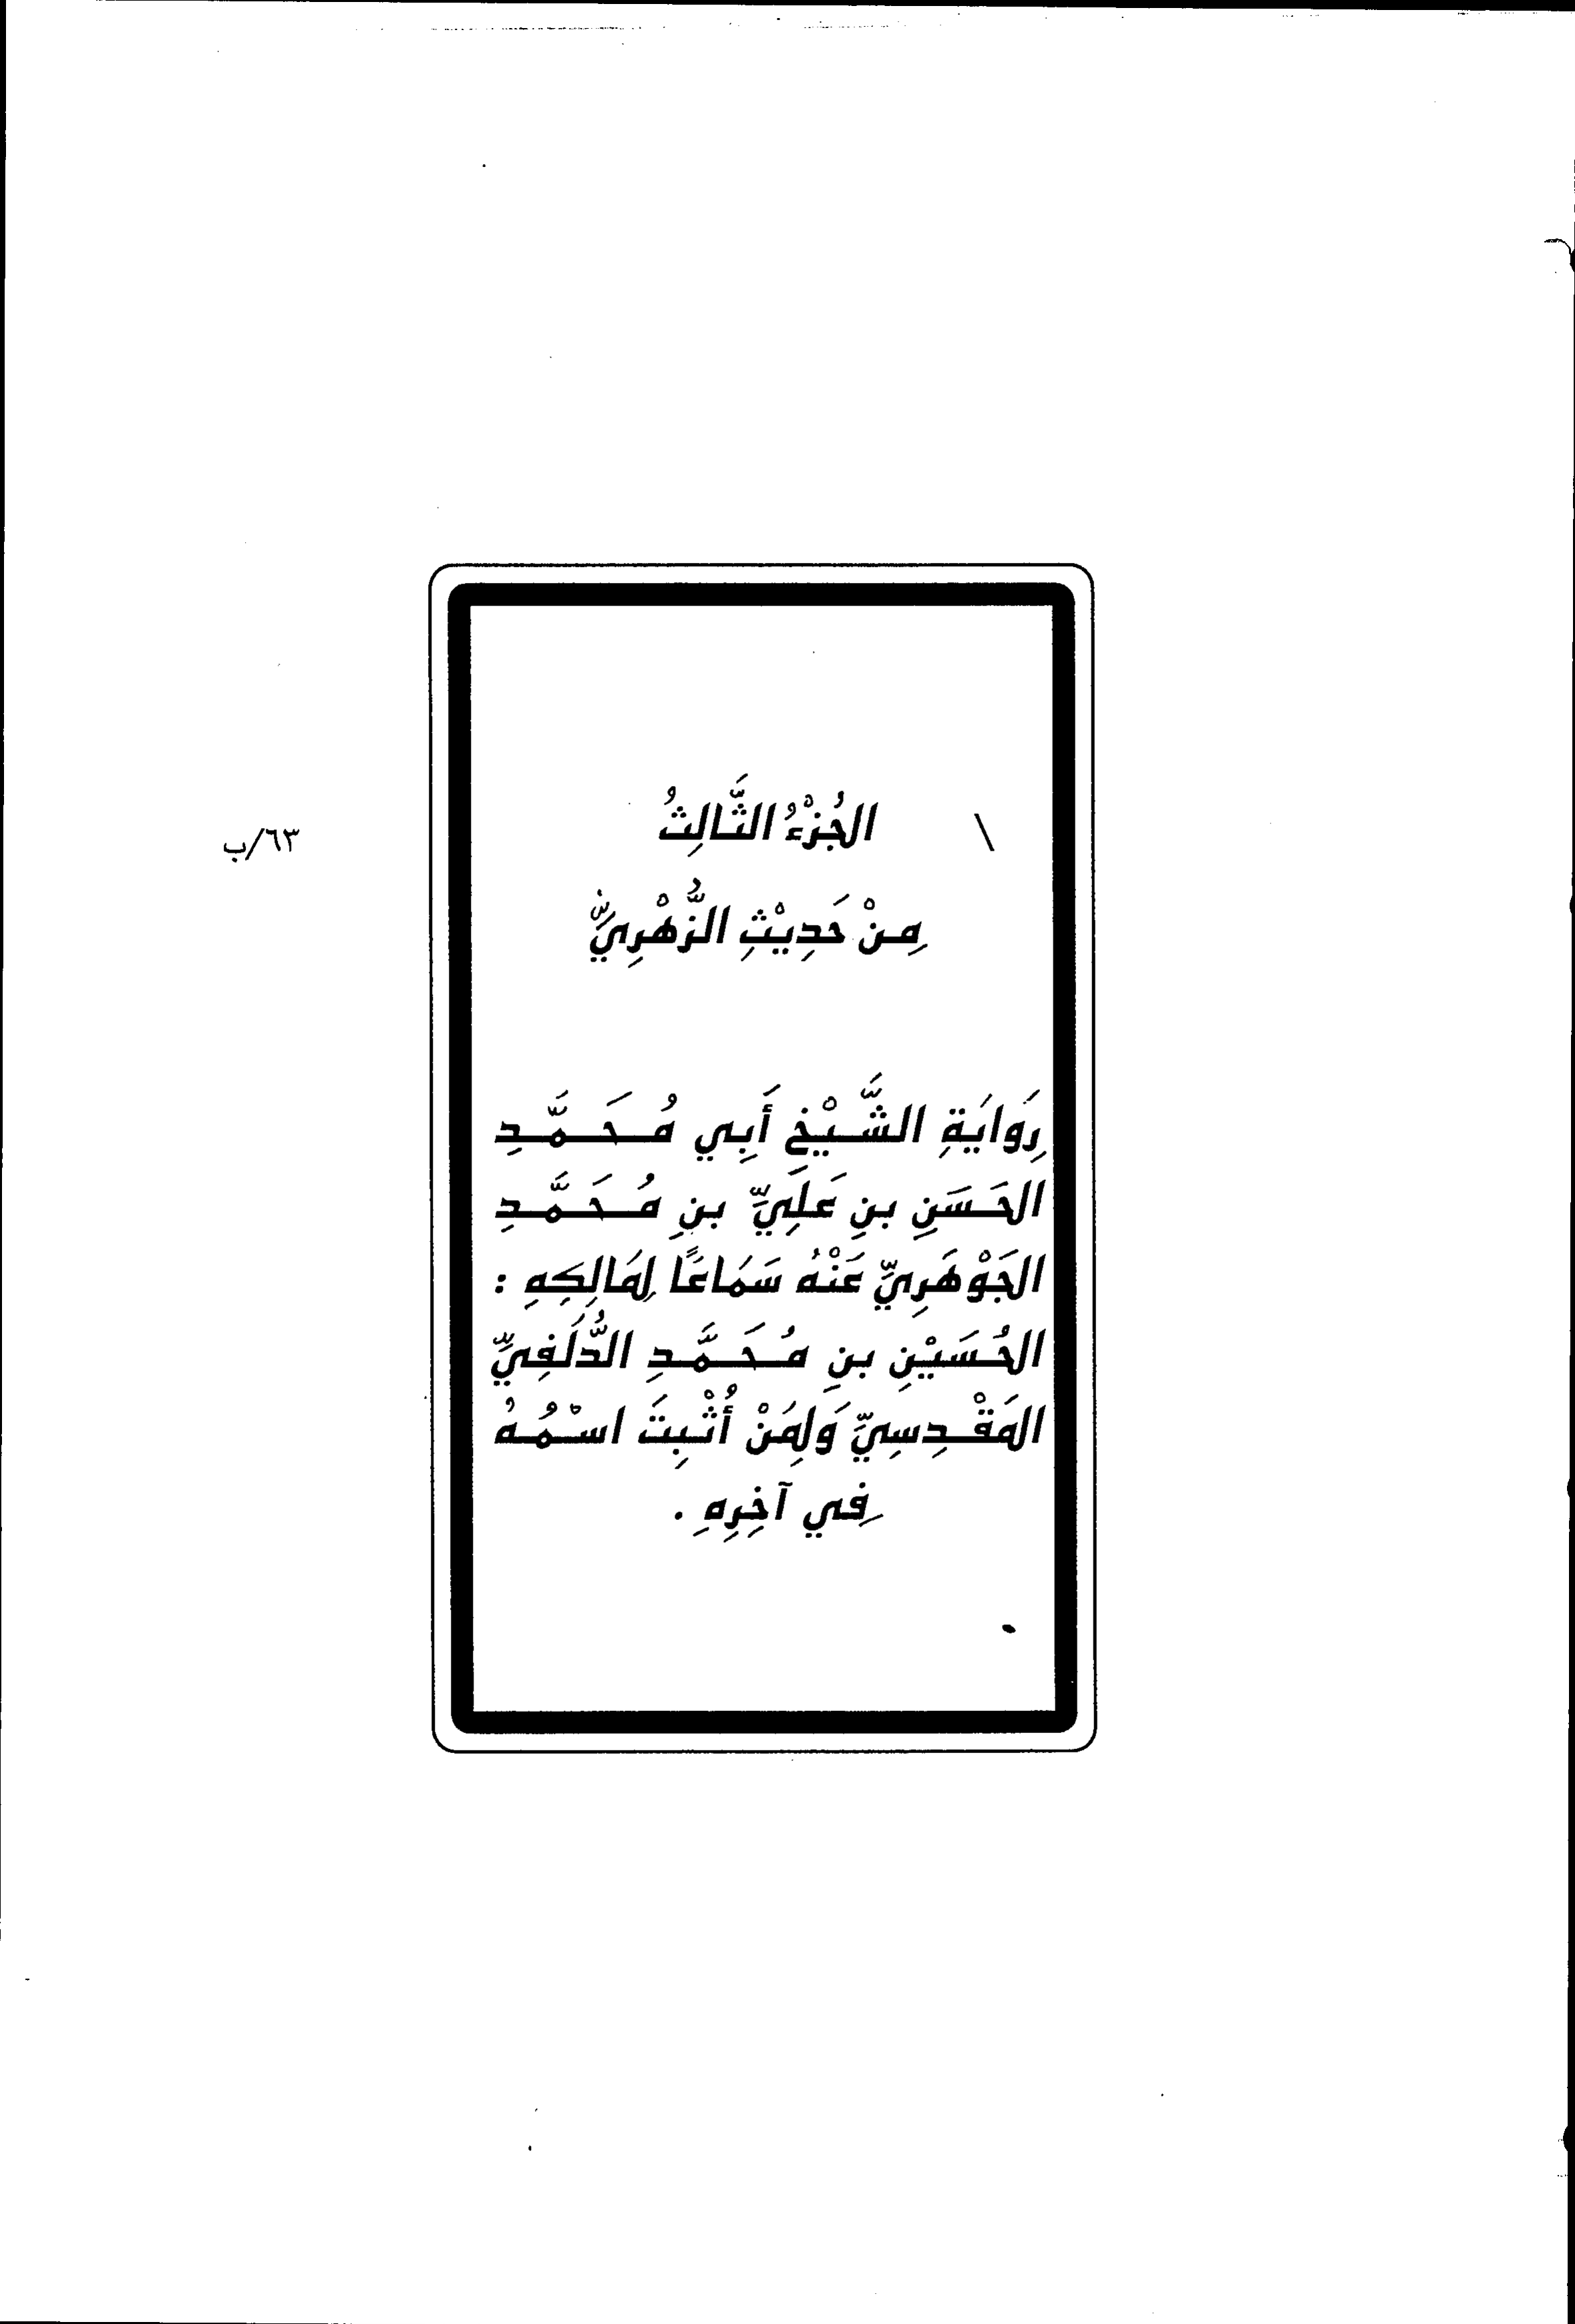 \ الجُزْءُ الثَّالِثُ
٦٣/ب
مِنْ حَدِيْثِ الزُّهْرِيِّ
رِوَايَةِ الشَّيْخِ أَبِي مُحَمَّدِ
الحَسَنِ بنِ عَلِيِّ بنِ مُحَمَّدِ
الجَوْهَرِيِّ عَنْهُ سَمَاعًا لِمَالِكِهِ :
الحُسَيْنِ بنِ مُحَمَّدِ الدُّلَفِيِّ
المَقْدِسِيِّ وَلِمَنْ أُثْبِتَ اسْمُهُ
فِي آخِرِهِ .